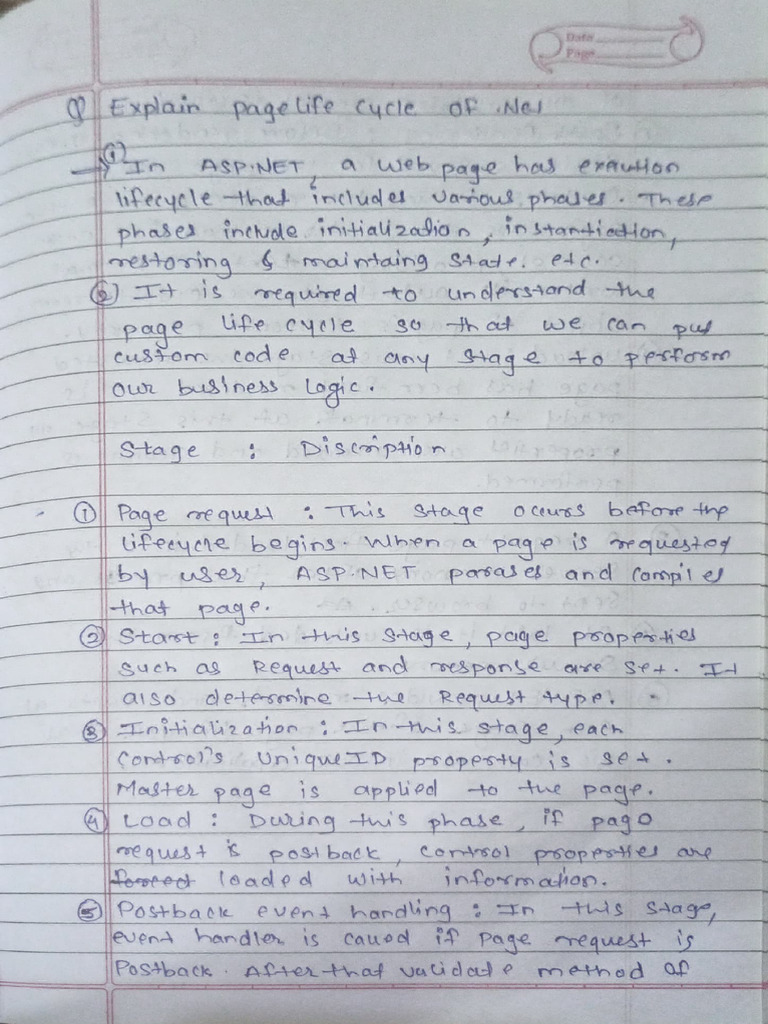 Date
Page
Q Explain page life cycle of .Net
→ ① In ASP.NET, a web page has exaution
lifecycle that includes various phases. These
phases include initialization, instantiation,
restoring & maintaing state. etc.
② It is required to understand the
page life cycle so that we can put
custom code at any stage to perform
our business logic.
Stage : Discription
① Page request : This stage occurs before the
lifecycle begins. When a page is requested
by user, ASP.NET parases and compiles
that page.
② Start : In this stage, page properties
such as Request and response are set. It
also determine the Request type.
③ Initialization : In this stage, each
control's UniqueID property is set.
Master page is applied to the page.
④ Load : During this phase, if page
request is postback, control properties are
forced loaded with information.
⑤ Postback event handling : In this stage,
event handler is called if page request is
Postback. After that validate method of